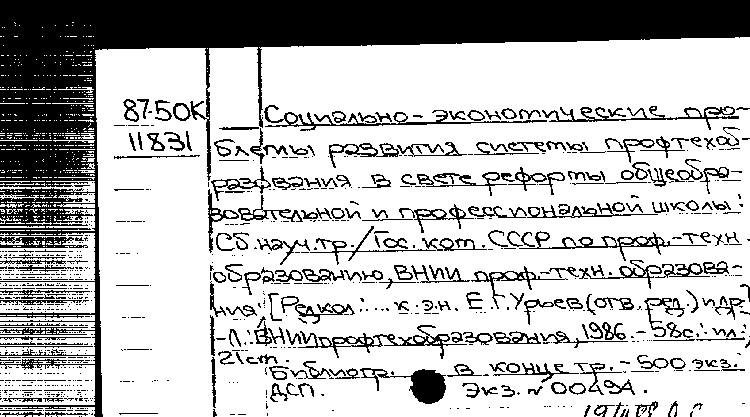 87-50К
11831
Социально-экономические про-
блемы развития системы профтехоб-
разования в свете реформы общеобра-
зовательной и профессиональной школы:
Сб.науч.тр./Гос.ком.СССР по проф.-техн.
образованию, ВНИИ проф.-техн.образова-
ния; [Редкол.:... к.эн. Е.Г.Юрьев (отв.ред.) и др.]
-Л.: ВНИИпрофтехобразования, 1986.-58с.: ил.;
21cm.
Библиогр. в конце тр.-500экз.
ДСП. Экз.№00494.